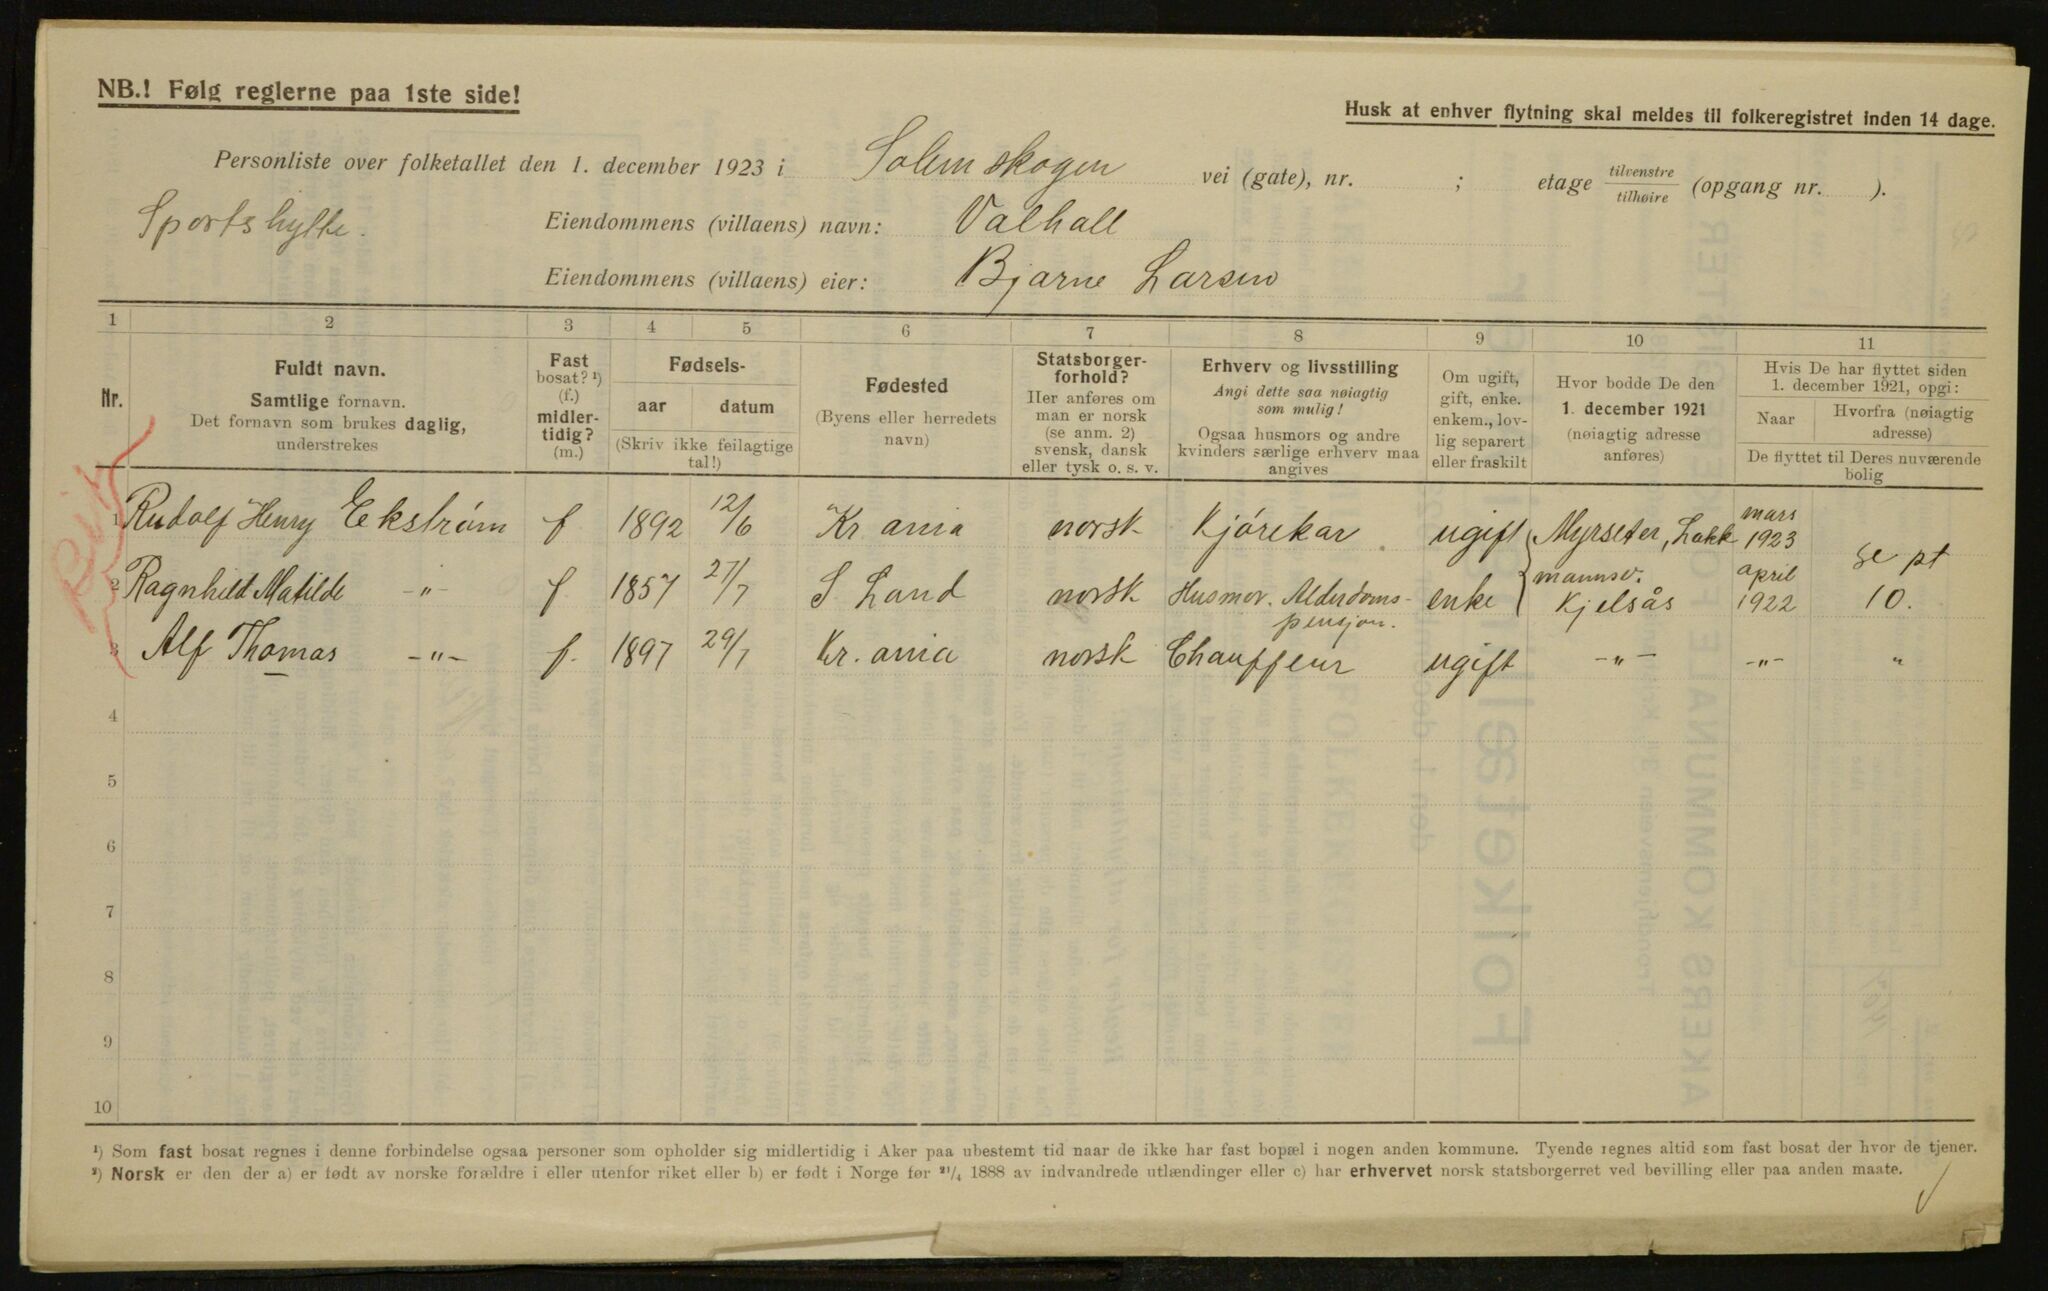 NB.! Følg reglerne paa 1ste side!
Husk at enhver flytning skal meldes til folkeregistret inden 14 dage.
Personliste over folketallet den 1. december 1923 i Solemskogen vei (gate), nr. ; etage tilvenstre/tilhøire (opgang nr. ).
Sportshytte. Eiendommens (villaens) navn: Valhall
Eiendommens (villaens) eier: Bjarne Larsen
1 2 3 4 5 6 7 8 9 10 11
Nr.
Fuldt navn.
Samtlige fornavn.
Det fornavn som brukes daglig,
understrekes
Fast
bosat? ¹)
(f.)
midler-
tidig?
(m.)
Fødsels-
aar datum
(Skriv ikke feilagtige
tal!)
Fødested
(Byens eller herredets
navn)
Statsborger-
forhold?
Her anføres om
man er norsk
(se anm. 2)
svensk, dansk
eller tysk o. s. v.
Erhverv og livsstilling
Angi dette saa nøiagtig
som mulig!
Ogsaa husmors og andre
kvinders særlige erhverv maa
angives
Om ugift,
gift, enke.
enkem., lov-
lig separert
eller fraskilt
Hvor bodde De den
1. december 1921
(nøiagtig adresse
anføres)
Hvis De har flyttet siden
1. december 1921, opgi:
Naar Hvorfra (nøiagtig
adresse)
De flyttet til Deres nuværende
bolig
1 Rudolf Henry Ekstrøm f 1892 12/6 Kr ania norsk Kjørekar ugift Myrseter, Lakk mars 1923 se pt
2 Ragnhild Matilde -"- f 1857 27/7 S Land norsk Husmor. Alderdoms-pensjon. enke mannsv. Kjelsås april 1922 10.
3 Alf Thomas -"- f. 1897 29/7 Kr. ania norsk Chauffeur ugift -"- -"- "
4
5
6
7
8
9
10
¹) Som fast bosat regnes i denne forbindelse ogsaa personer som opholder sig midlertidig i Aker paa ubestemt tid naar de ikke har fast bopæl i nogen anden kommune. Tyende regnes altid som fast bosat der hvor de tjener.
²) Norsk er den der a) er født av norske forældre i eller utenfor riket eller b) er født i Norge før ²¹/₄ 1888 av indvandrede utlændinger eller c) har erhvervet norsk statsborgerret ved bevilling eller paa anden maate.